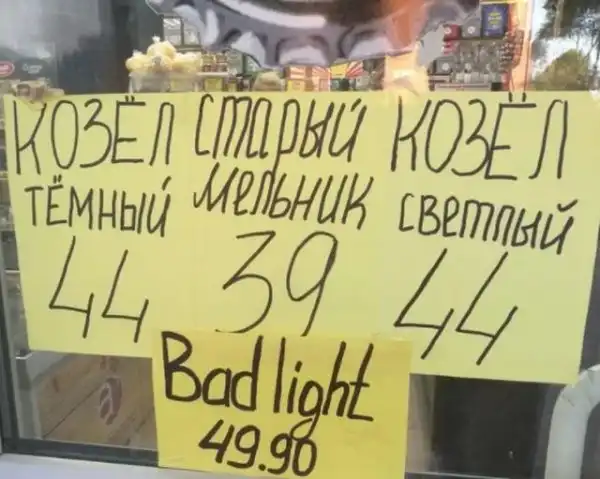 КОЗЁЛ
ТЁМНЫЙ
44
СТАРЫЙ
МЕЛЬНИК
39
КОЗЁЛ
СВЕТЛЫЙ
44
Bad light
49.90